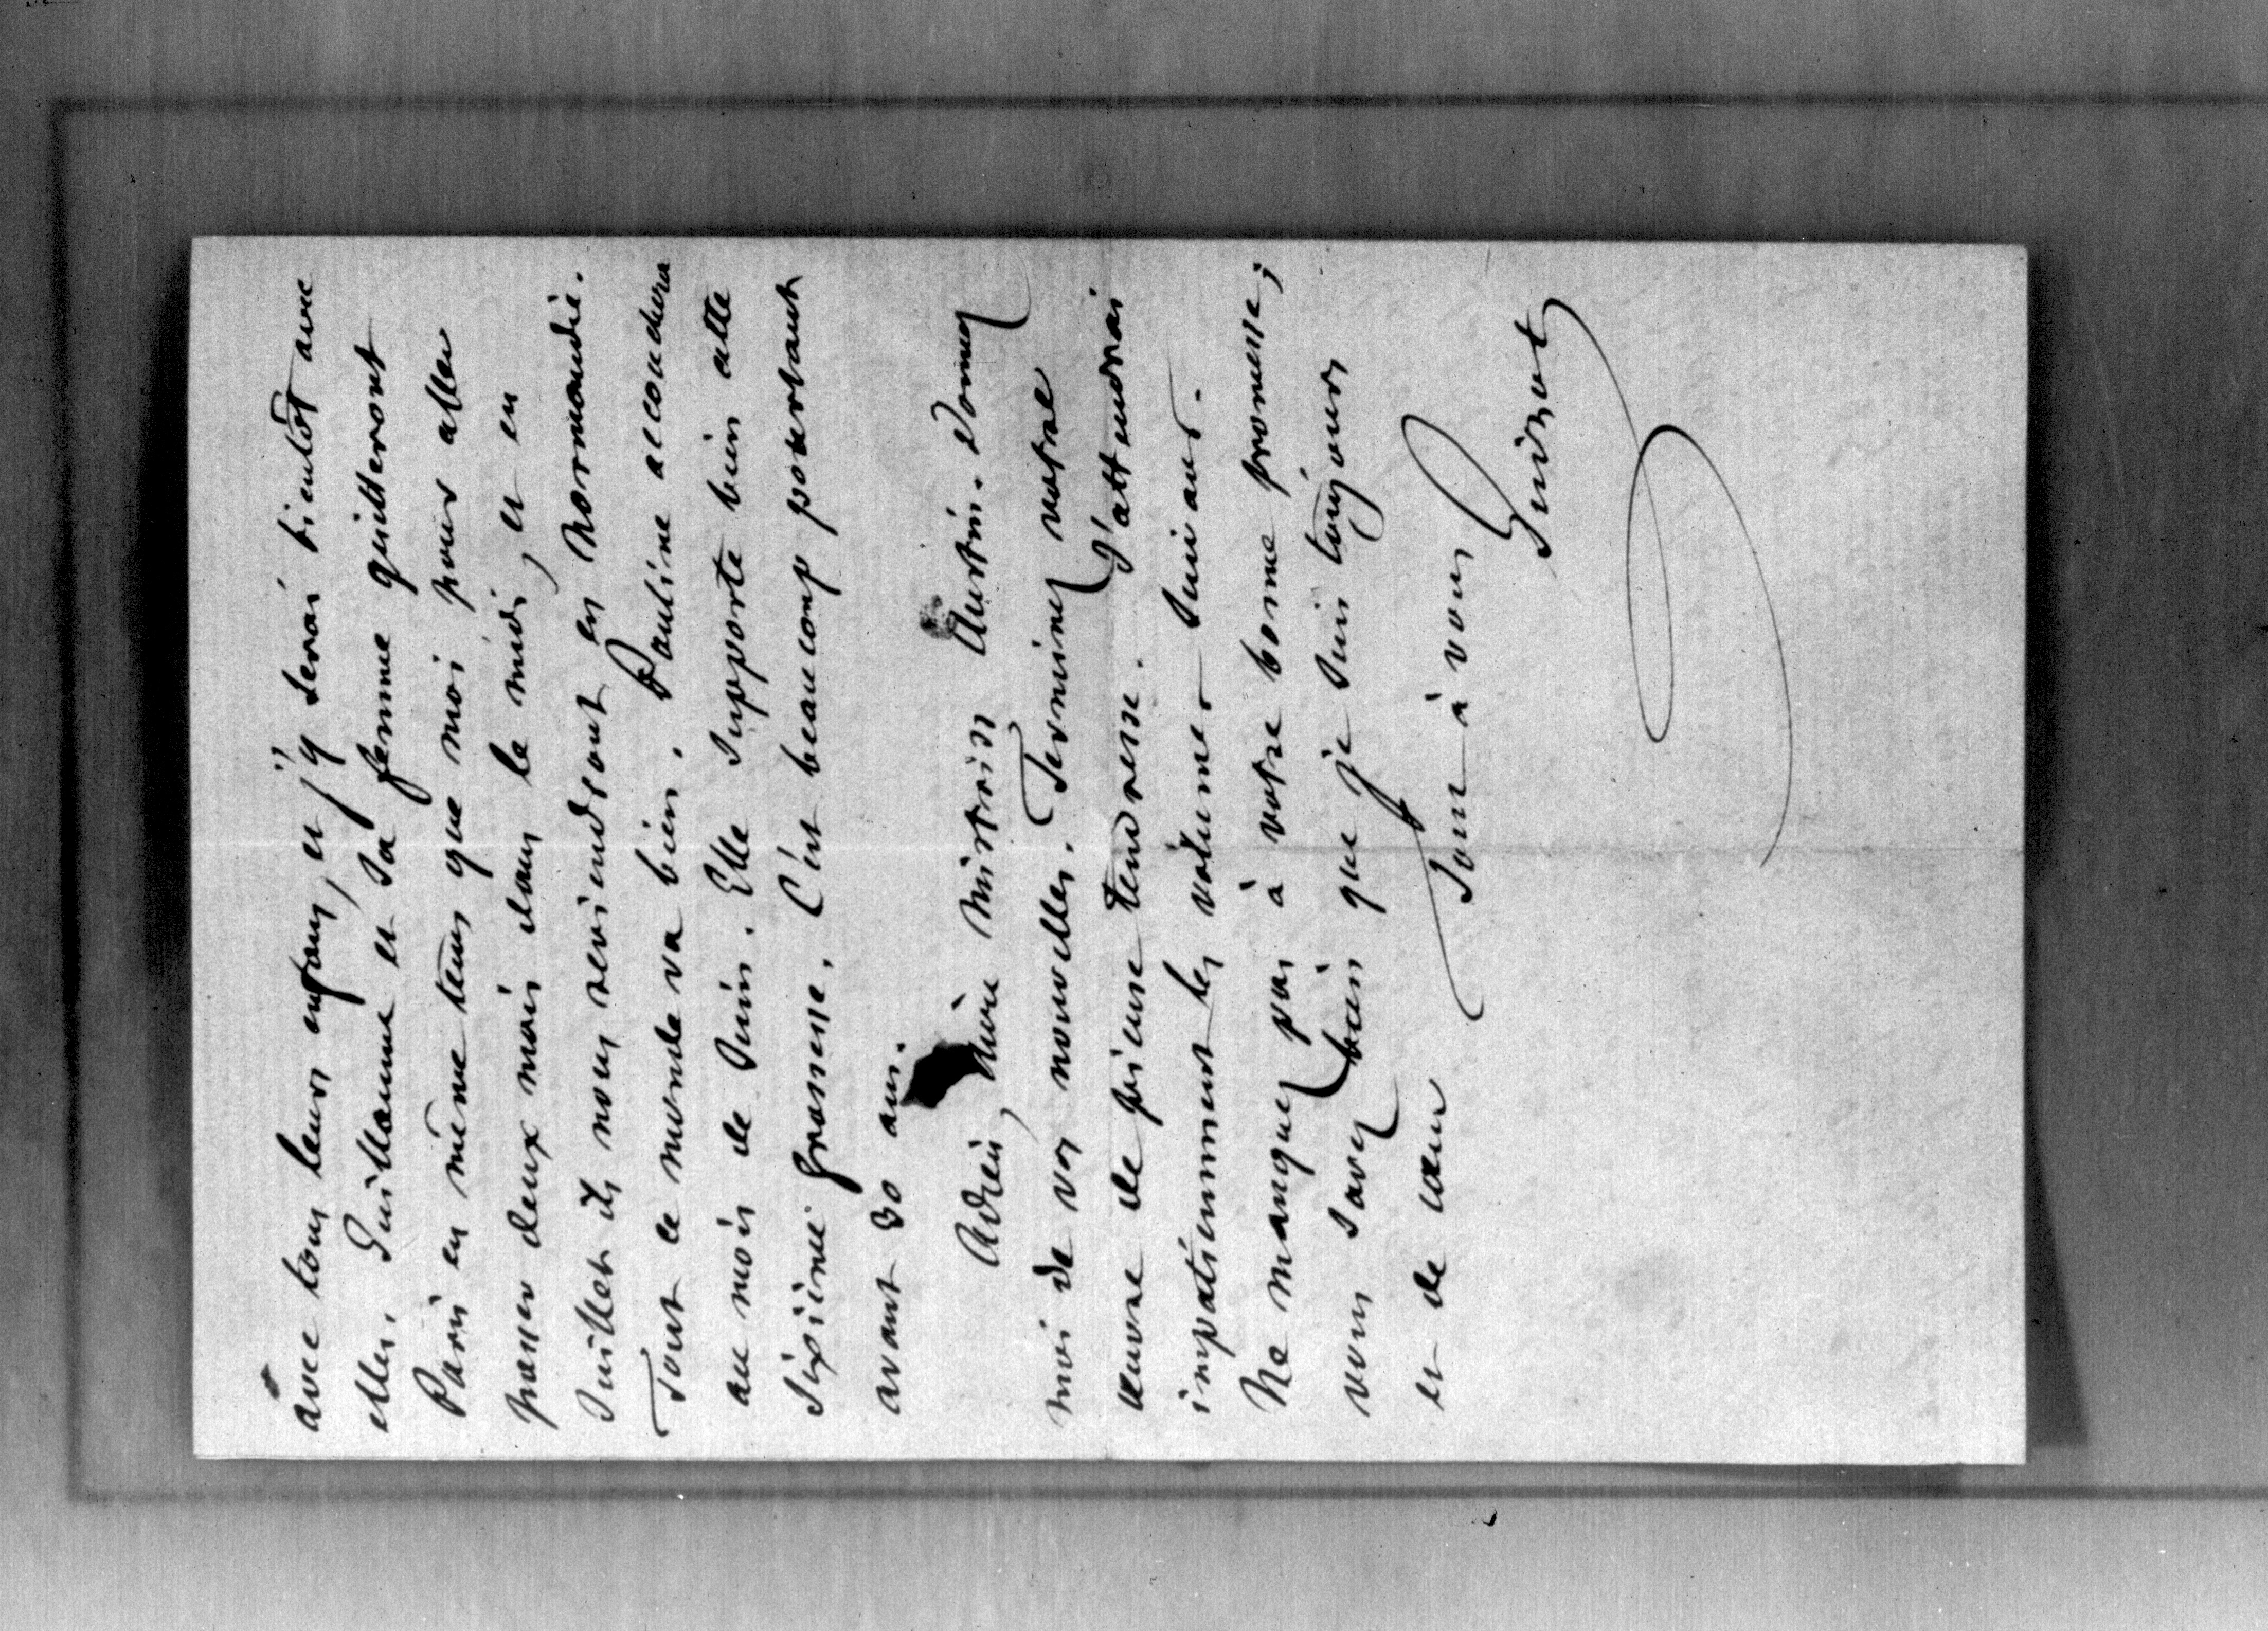 avec tous leurs enfans, et j'y serai bientôt avec
elles. Guillaume et sa femme quitteront
Paris en même tems que moi pour aller
passer deux mois dans le midi, et en
Juillet ils nous reviendront en Normandie.
Tout ce monde va bien. Pauline accouchera
au mois de Juin. Elle supporte bien cette
sixième grossesse. C'est beaucoup pourtant
avant 30 ans.
Adieu, chère Mistriss Austin. Donnez
moi de vos nouvelles. Terminez votre
œuvre de pieuse tendresse. J'attendrai
impatiemment les volumes suivans.
Ne manquez pas à votre bonne promesse;
vous savez bien que je suis toujours
et de cœur
Tout à vous
Guizot